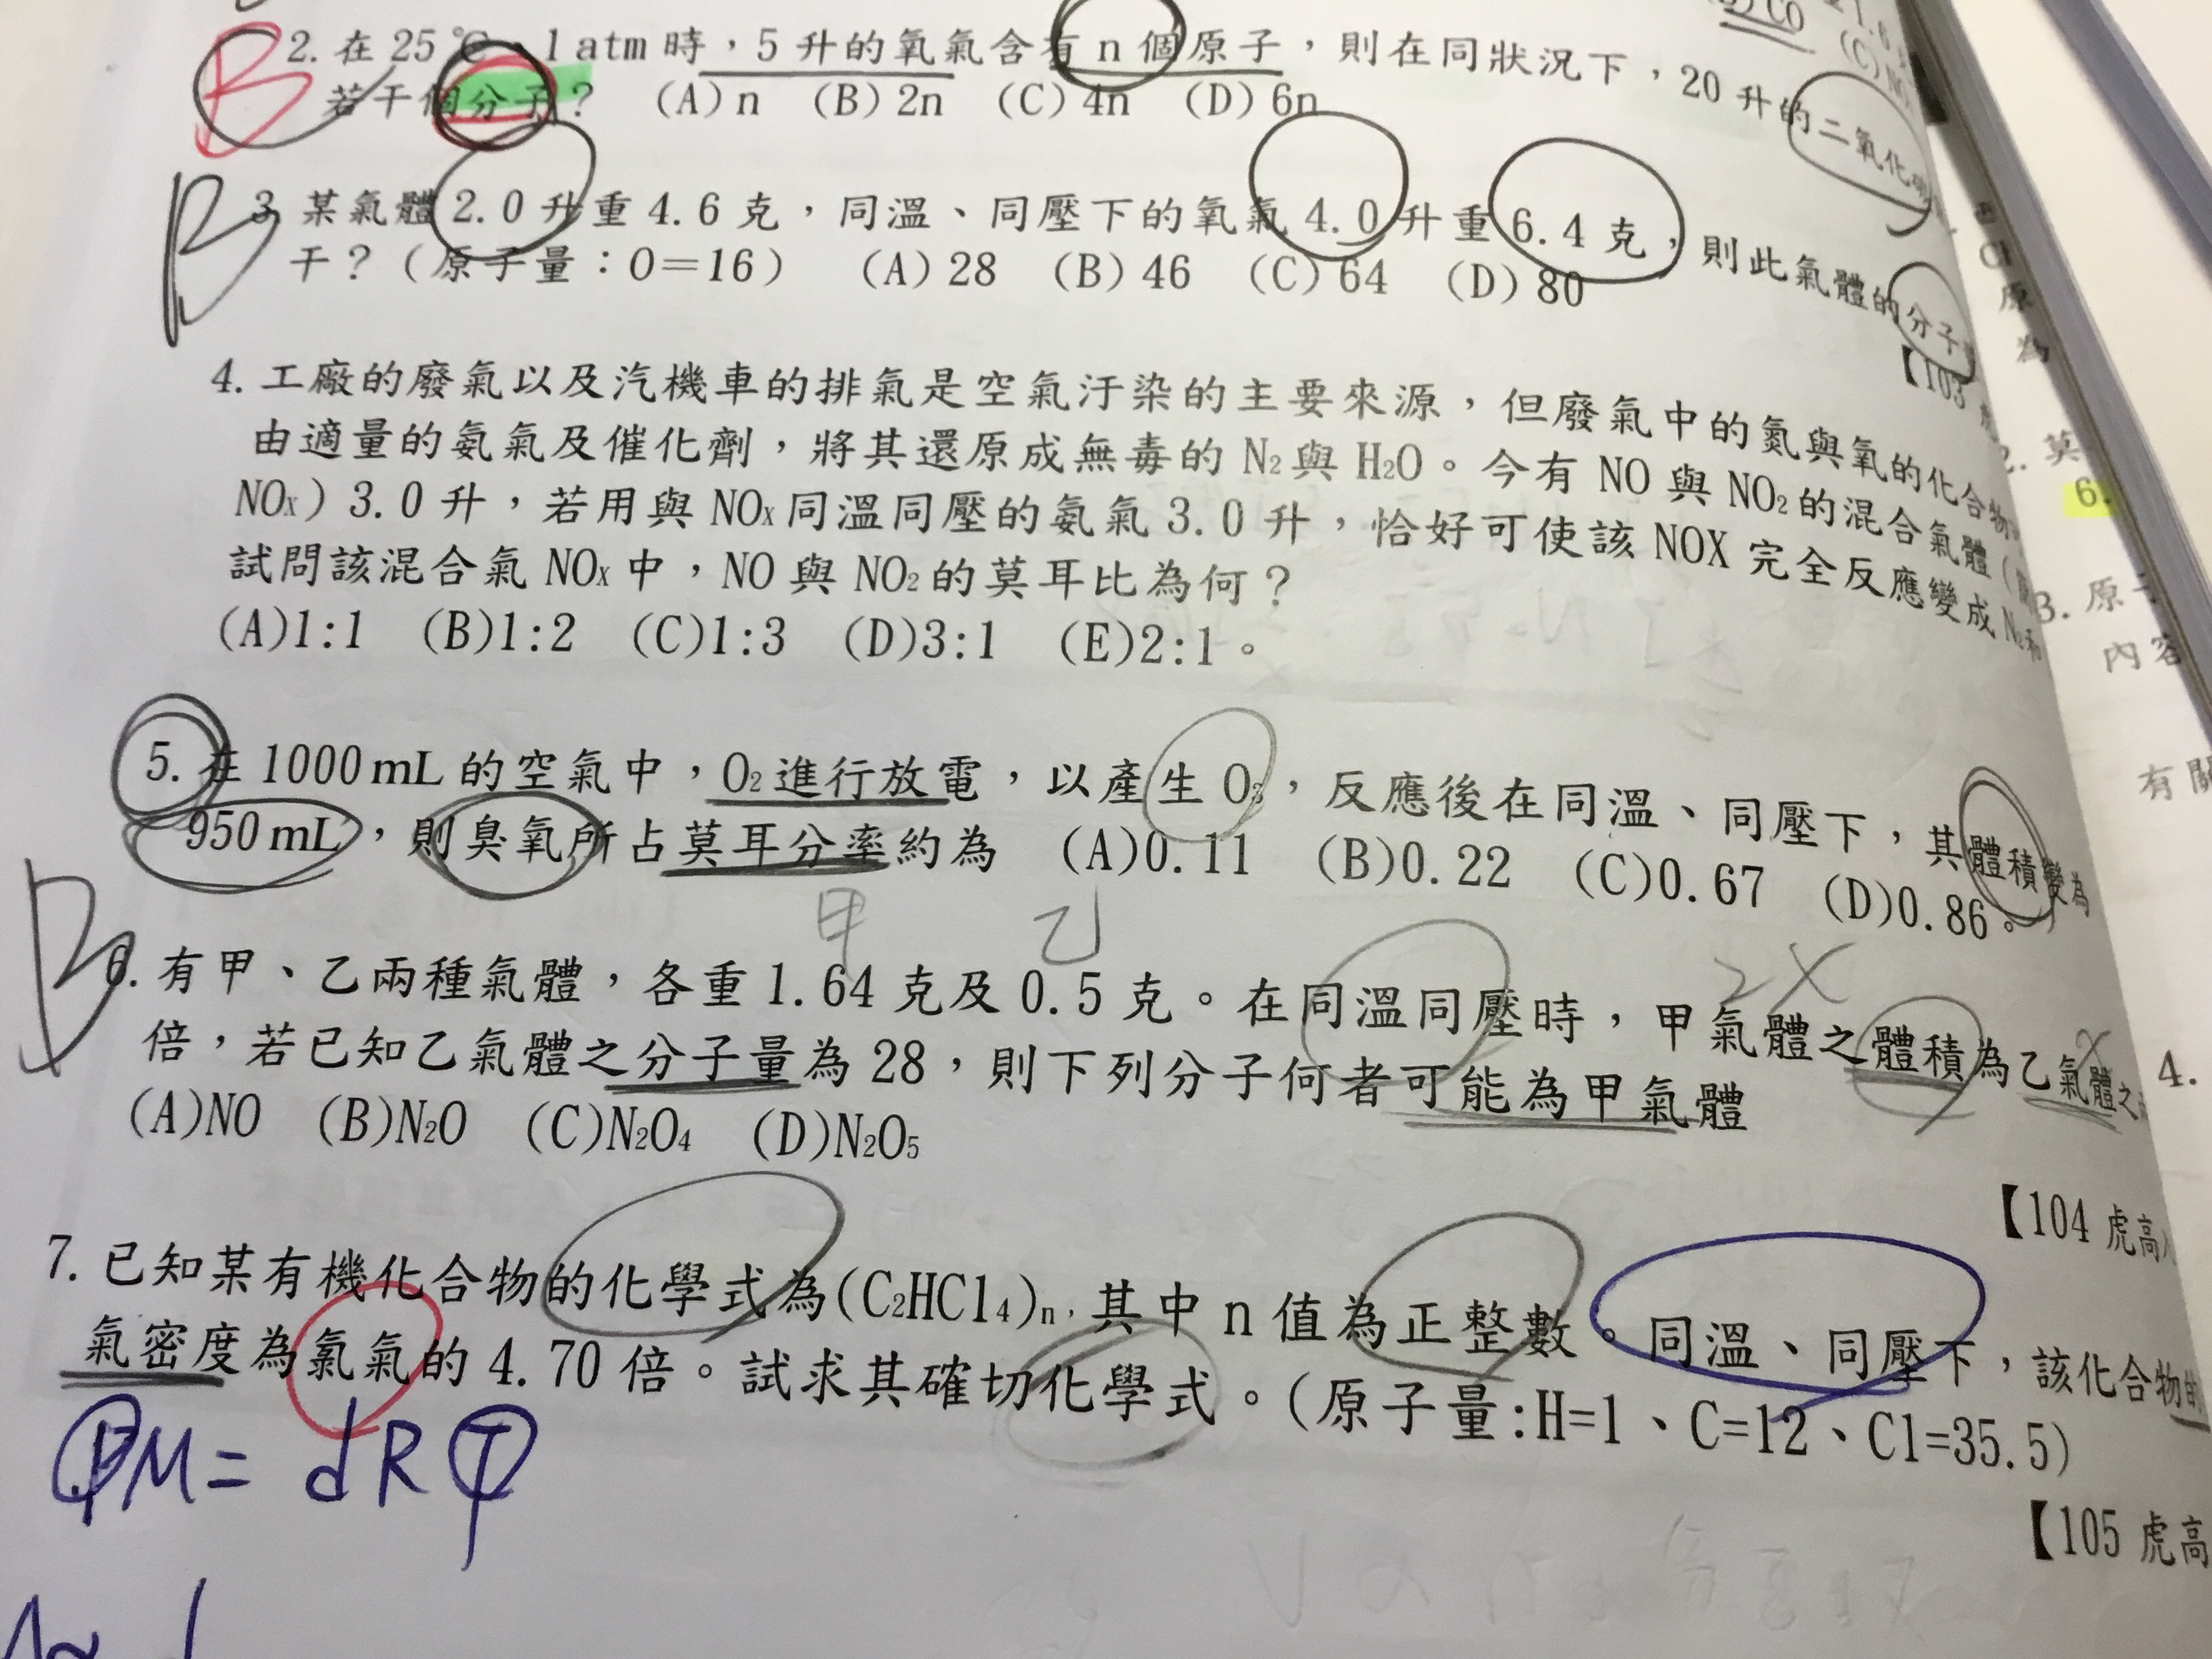 CO
(C) NO
2. 在 25℃、1 atm 時，5 升的氧氣含有 n 個原子，則在同狀況下，20 升的二氧化
若干個分子？ (A) n (B) 2n (C) 4n (D) 6n
B
3. 某氣體 2.0 升重 4.6 克，同溫、同壓下的氧氣 4.0 升重 6.4 克，則此氣體的分子
干？（原子量：O＝16） (A) 28 (B) 46 (C) 64 (D) 80
B
【103
4. 工廠的廢氣以及汽機車的排氣是空氣汙染的主要來源，但廢氣中的氮與氧的化合物
由適量的氨氣及催化劑，將其還原成無毒的 N2 與 H2O。今有 NO 與 NO2 的混合氣體（
NOX）3.0 升，若用與 NOX 同溫同壓的氨氣 3.0 升，恰好可使該 NOX 完全反應變成 N2 和
試問該混合氣 NOX 中，NO 與 NO2 的莫耳比為何？
(A)1:1 (B)1:2 (C)1:3 (D)3:1 (E)2:1。
5. 在 1000 mL 的空氣中，O2 進行放電，以產生 O3，反應後在同溫、同壓下，其體積變為
950 mL，則臭氧所占莫耳分率約為 (A)0.11 (B)0.22 (C)0.67 (D)0.86。
甲 乙
2X
B
6. 有甲、乙兩種氣體，各重 1.64 克及 0.5 克。在同溫同壓時，甲氣體之體積為乙氣體之
倍，若已知乙氣體之分子量為 28，則下列分子何者可能為甲氣體
(A)NO (B)N2O (C)N2O4 (D)N2O5
【104 虎高
7. 已知某有機化合物的化學式為(C2HCl4)n，其中 n 值為正整數。同溫、同壓下，該化合物的
氣密度為氯氣的 4.70 倍。試求其確切化學式。(原子量:H=1、C=12、Cl=35.5)
PM = dRT
【105 虎高
原
為
2. 莫
6.
3. 原子
內容
有關
4.